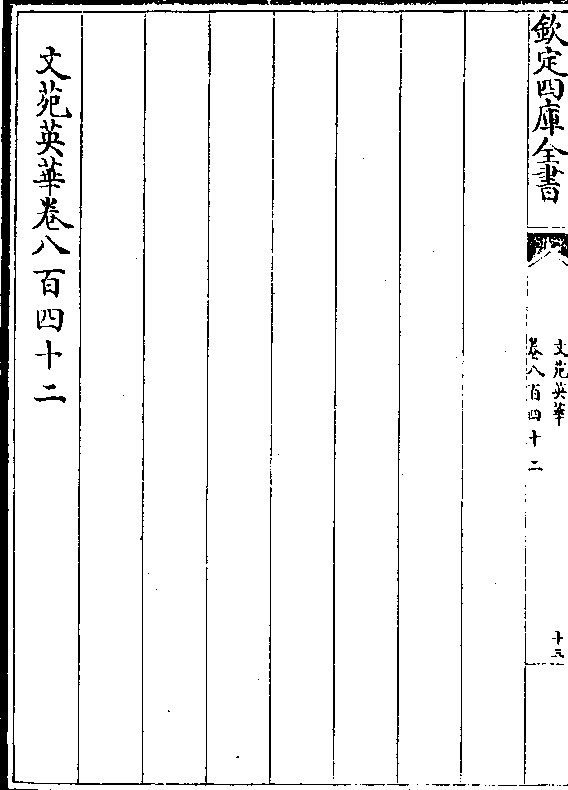 欽定四庫全書
文苑英華
卷八百四十二
十三
文苑英華卷八百四十二